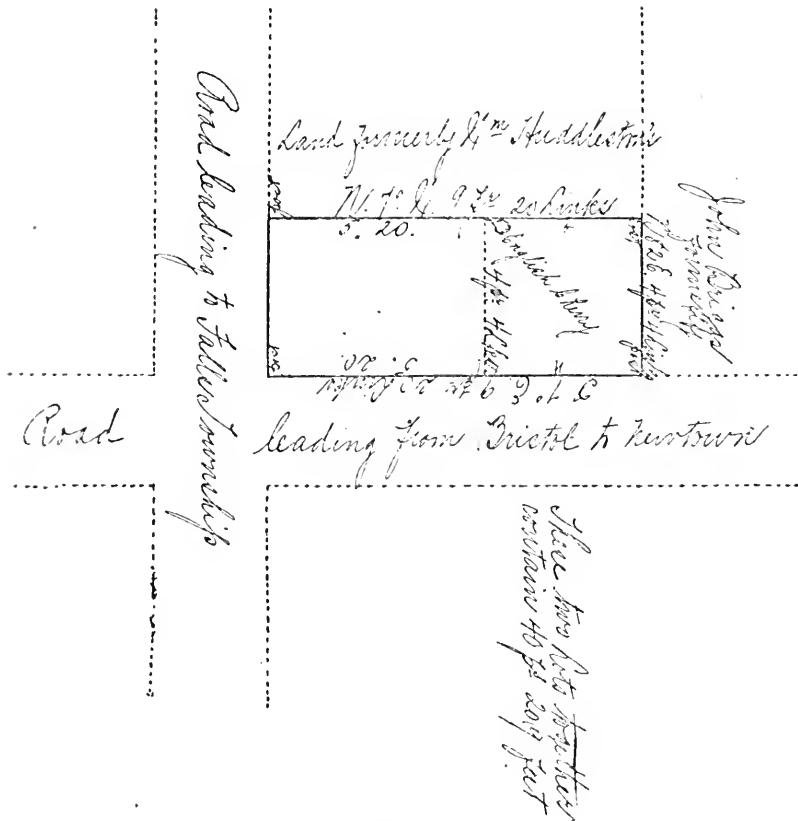 Road leading to Falls Township
Land formerly Wm Huddleston's
9 Ps 20 Links
5. 20.
4
John Briggs
formerly
4 ps 4 Links
English &
4 ps 4 Lks
5. 20
4
9 ps 20 Links
Road leading from Bristol to Newtown
These two Lots together
contain 40 ps 209 feet